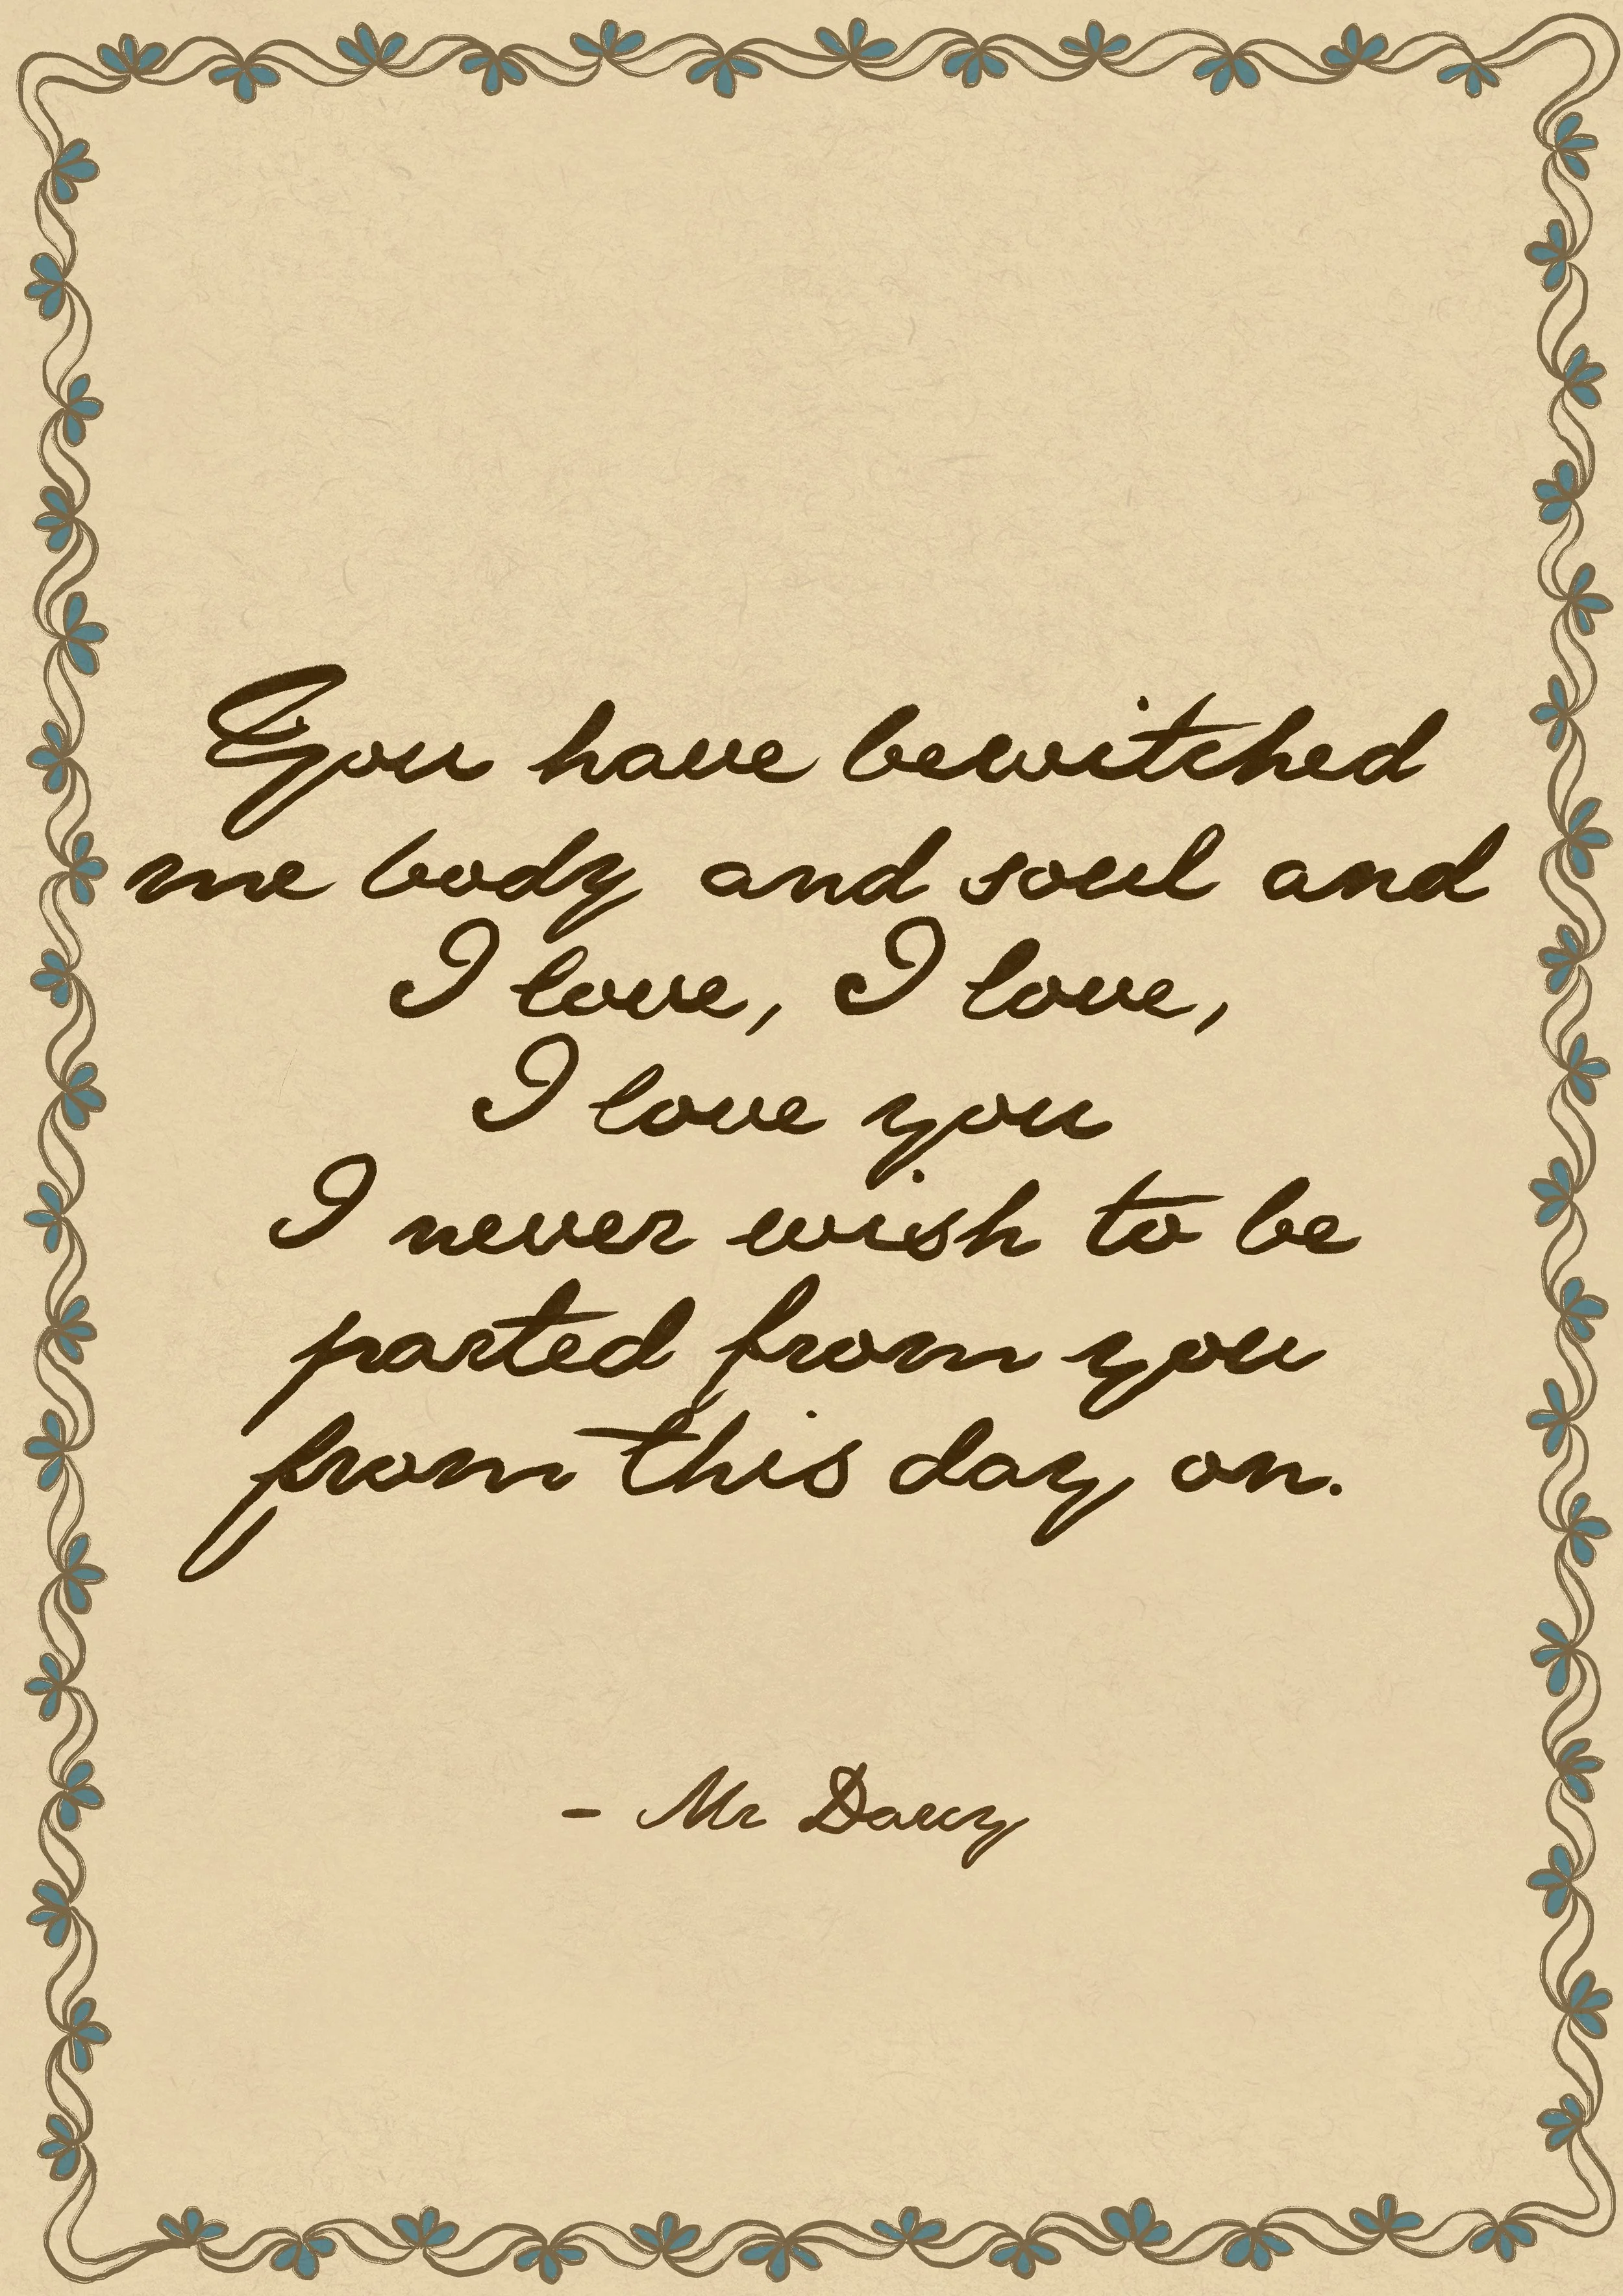 You have bewitched
me body and soul and
I love, I love,
I love you
I never wish to be
parted from you
from this day on.
- Mr Darcy